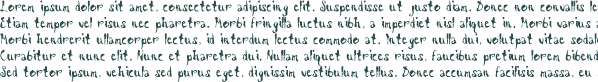 Lorem ipsum dolor sit amet, consectetur adipiscing elit. Suspendisse ut justo diam. Donec non convallis le
Etiam tempor vel risus nec pharetra. Morbi fringilla luctus nibh, a imperdiet nisl aliquet in. Morbi varius a
Morbi hendrerit ullamcorper lectus, id interdum lectus commodo at. Integer nulla dui, volutpat vitae sodal
Curabitur et nunc elit. Nunc et pharetra dui. Nullam aliquet ultrices risus, faucibus pretium lorem bibend
Sed tortor ipsum, vehicula sed purus eget, dignissim vestibulum tellus. Donec accumsan facilisis massa, eu